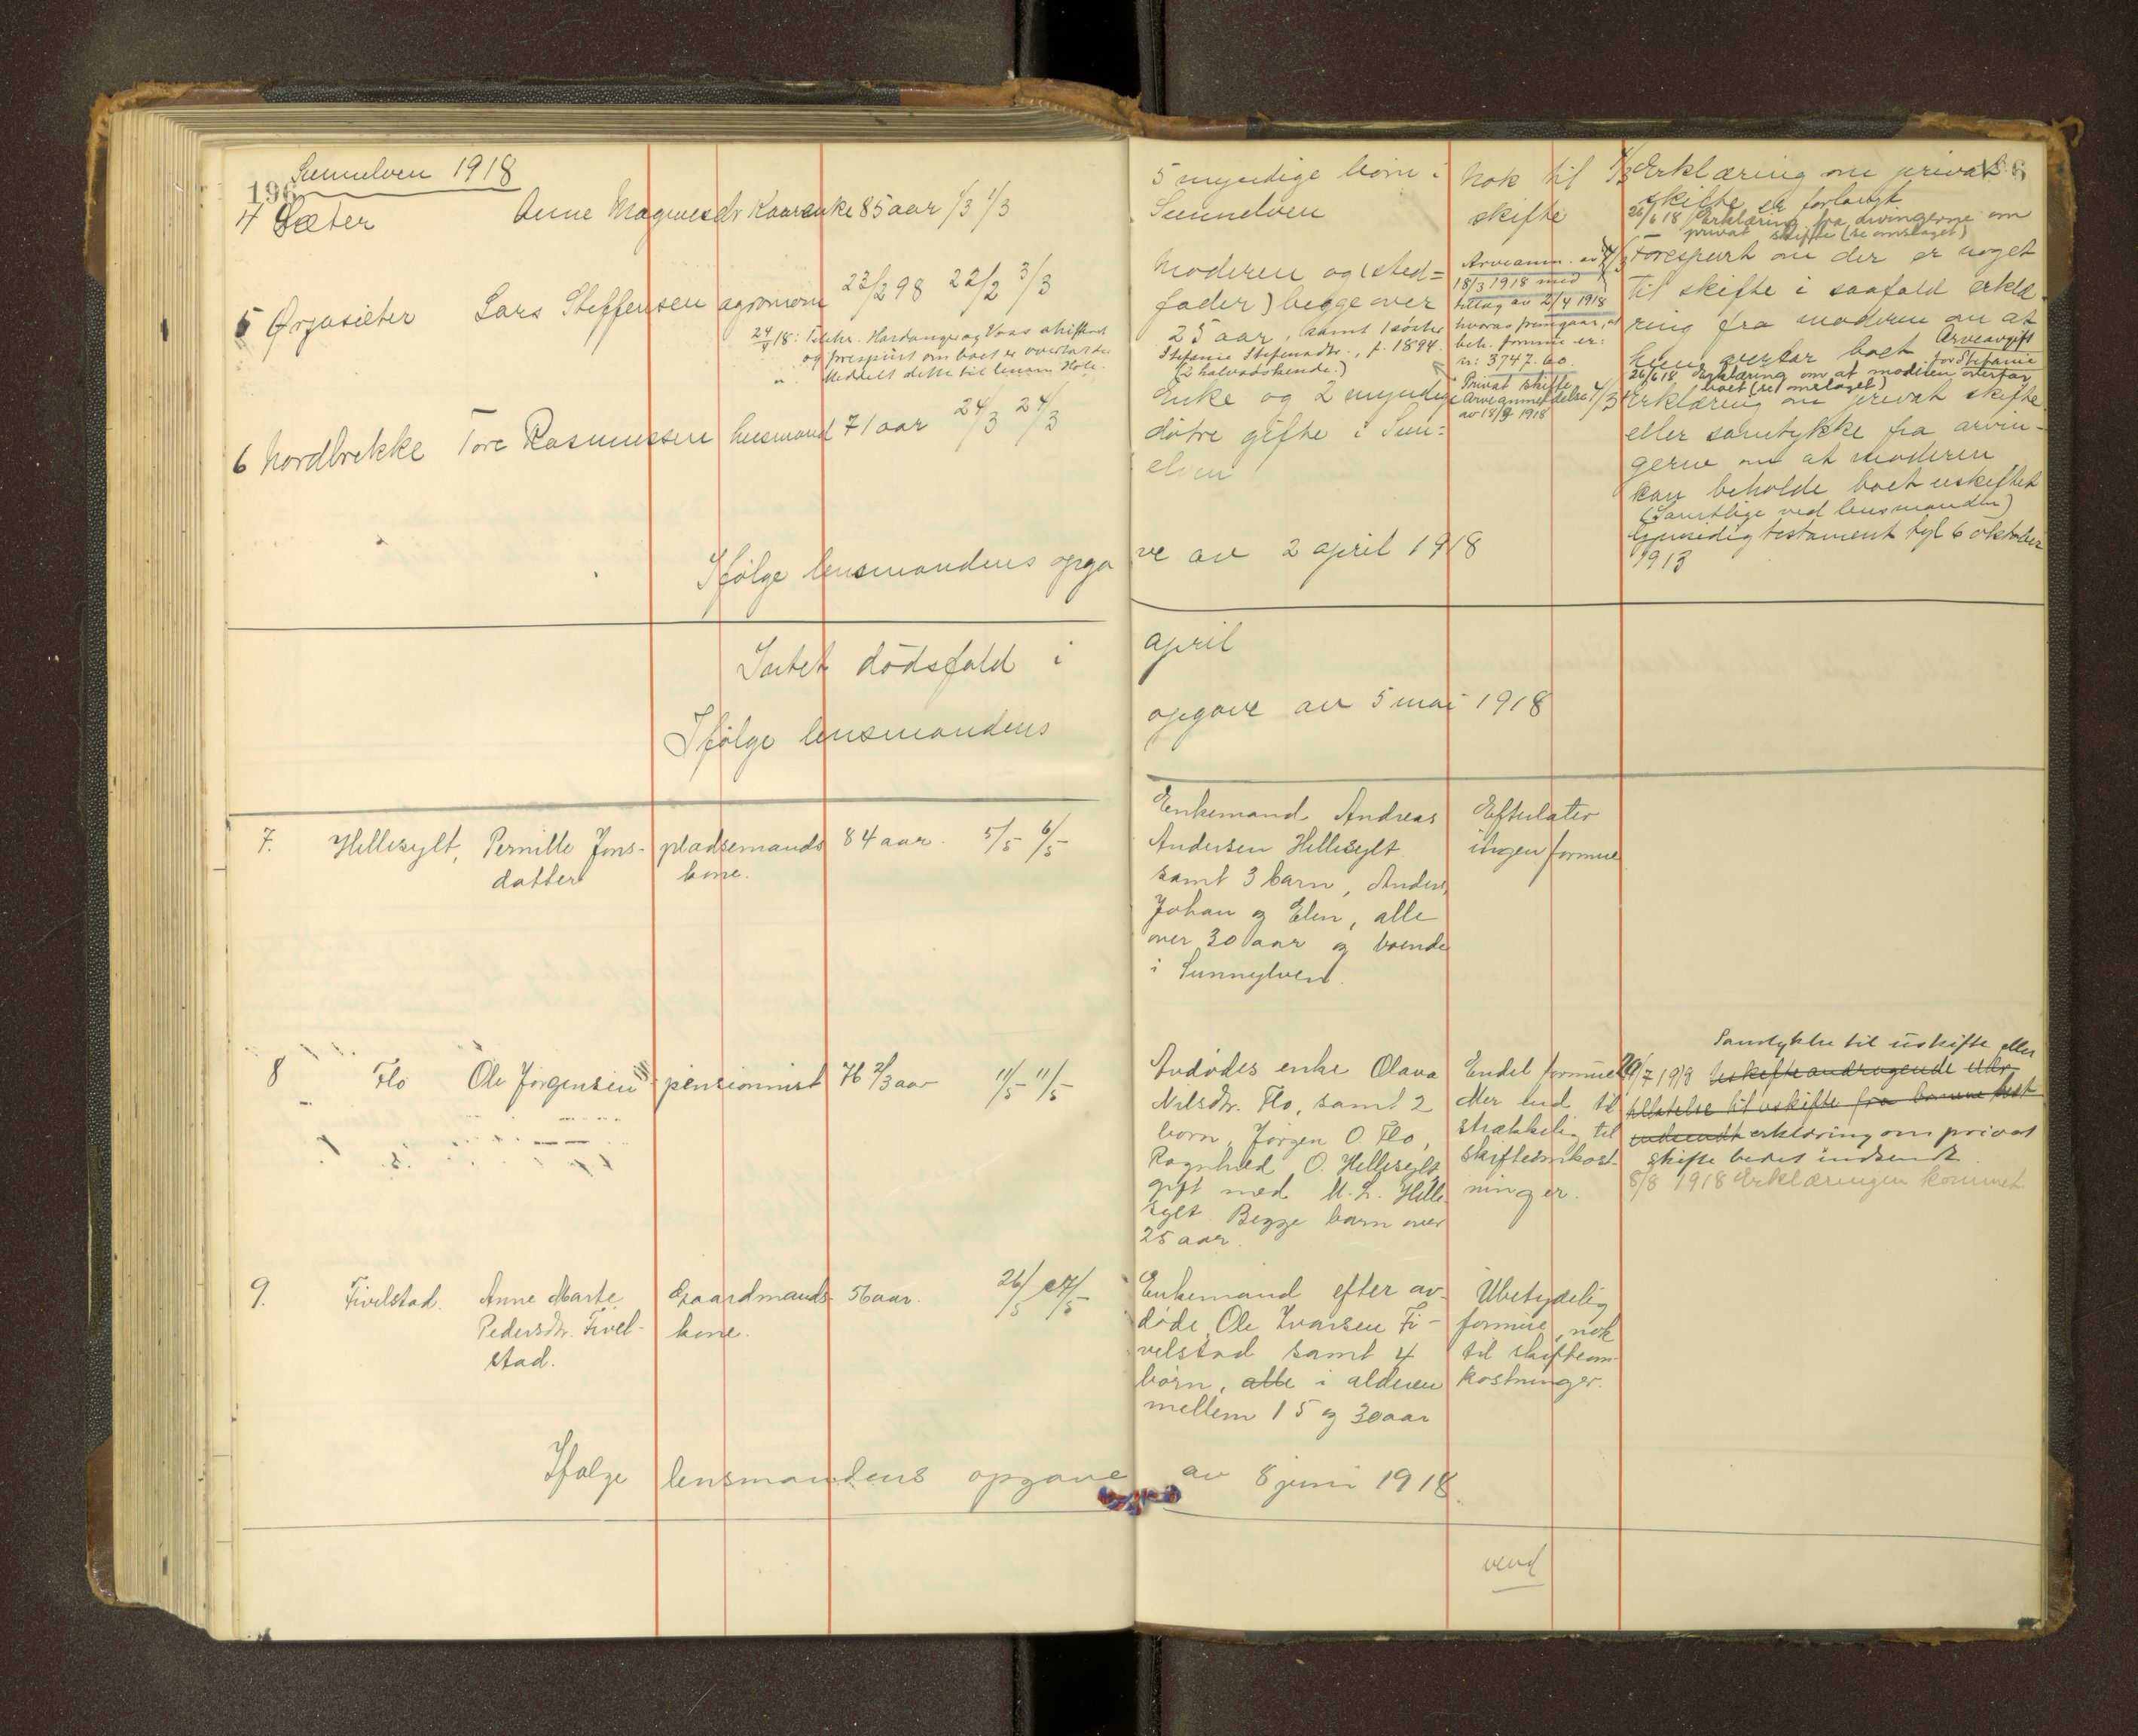 196
Sunnelven 1918
4 Sæter Anne Magnesdr Kaarenke 85 aar 1/3 1/3
5 Ørjasæter Lars Steffensen agronom 22/2 98 22/2 3/3
24/4 18: Hardanger og Voss skifteret
og forespurt om boet er overtat
" Meddelt dette til lensm Hole.
6 Nordbrekke Tore Rasmussen husmand 71 aar 24/3 24/3
Ifølge lensmandens opga
Intet dødsfald i
Ifølge lensmandens
7. Hellesylt, Pernille Jons- pladsemands 84 aar. 5/5 6/5
datter kone.
8 Flo Ole Jørgensen pensionnist 76 2/3 aar 11/5 11/5
9. Fivelstad. Anne Marte Gaardmands- 56 aar. 26/5 27/5
Pedersdtr. Fivel- kone.
stad.
Ifølge lensmandens opgave
196
5 myndige børn i
Sunnelven
Nok til
skifte
1/3 Erklæring om privat
skifte er forlangt
26/6 18 Erklæring fra arvingerne om
privat skifte (se omslaget)
Moderen og (sted=
fader) begge over
25 aar, samt 1 søster
Stefanie Stefensdtr., f. 1894
(2 halvsøskende.)
Arveanm. av
18/3 1918 med
tillæg av 2/4 1918
hvoraf fremgaar, at
beh. formue er:
kr: 3747.60
4/3 Forespurt om der er noget
til skifte i saafald erklæ-
ring fra moderen om at
hun overtar boet Arveavgift
for Stefanie
26/6 18 Erklæring om at modren overtar
boet (se omslaget)
Enke og 2 myndige
døtre gifte i Sun:
elven
Privat skifte
Arveanmeldelse
av 18/3 1918
4/3 Erklæring om privat skifte
eller samtykke fra arvin-
gerne om at moderen
kan beholde boet uskiftet
(Samtlige ved lensmanden)
Gjensidig testament tgl 6 oktober
1913
ve av 2 april 1918
april
opgave av 5 mai 1918
Enkemand Andreas
Andersen Hellesylt
samt 3 barn, Anders,
Johan og Elen, alle
over 30 aar og boende
i Sunnylven.
Efterlater
ingen formue
Avdødes enke Olava
Nilsdtr. Flo, samt 2
born, Jørgen O. Flo,
Ragnhild O. Hellesylt,
gift med M. L. Helle-
sylt. Begge barn over
25 aar.
Endel formue
Mer end til
strækkelig til
skifteomkost-
ninger.
Samtykke til uskifte eller
29/7 1918 Uskifteandragende eller
tillatelse til uskifte fra barnene best
indsendt erklæring om privat
skifte bedes indsendt
8/8 1918 Erklæringen kommet
Enkemand efter av-
døde, Ole Ivarsen Fi-
velstad samt 4
børn, alle i alderen
mellem 15 og 30 aar
Ubetydelig
formue, nok
til skifteom-
kostninger.
av 8 juni 1918.
vend